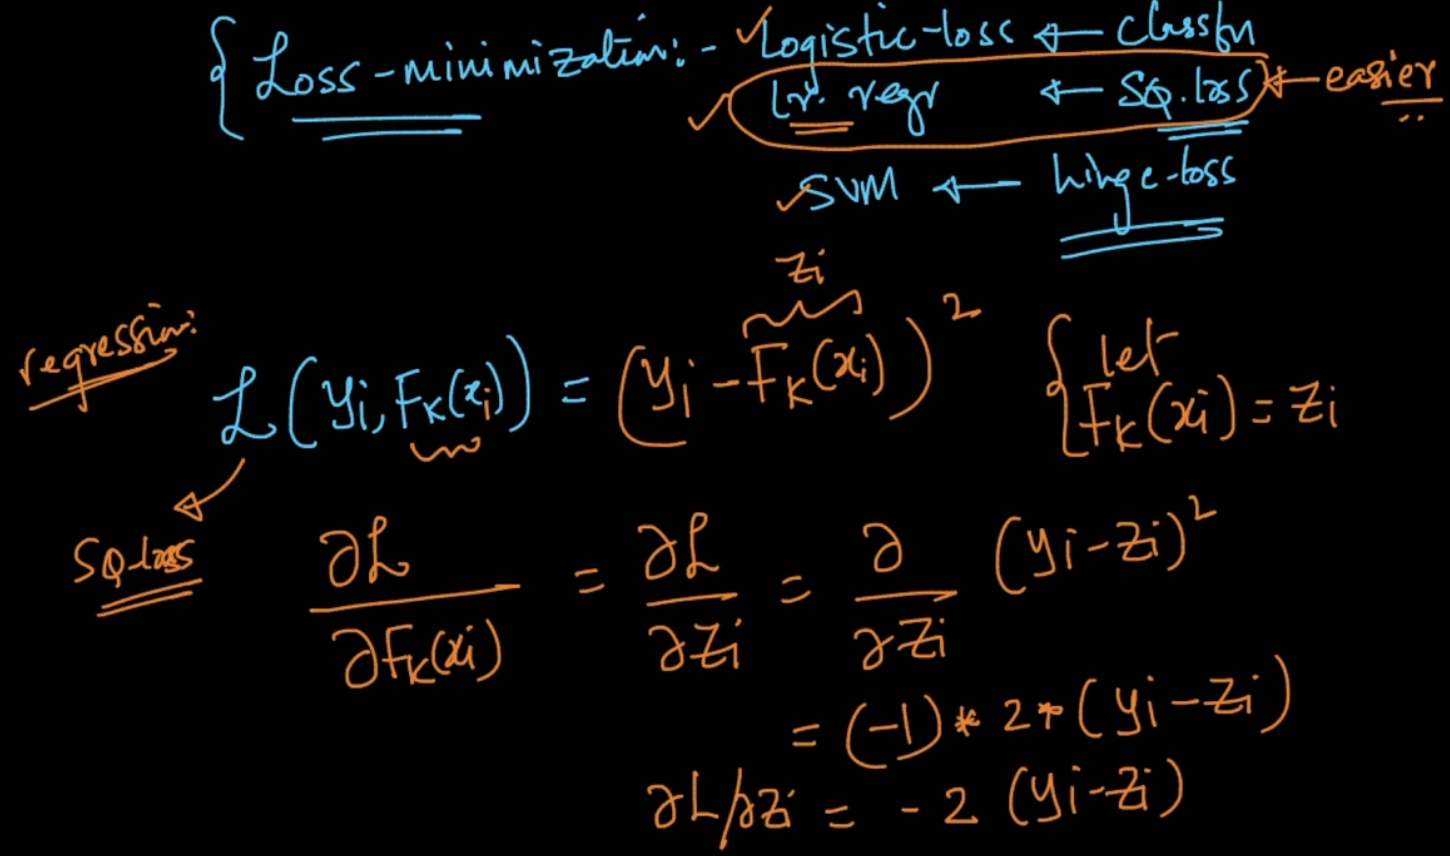 { Loss-minimization:- ✓Logistic-loss ← Classfn
✓ lr. regr ← SQ.loss ← easier
✓SVM ← hinge-loss
Zi
regression:
L(yi, Fk(xi)) = (yi - Fk(xi))² { let
Fk(xi) = Zi
SQ-loss
∂L/∂Fk(xi) = ∂L/∂Zi = ∂/∂Zi (yi-Zi)²
= (-1) * 2 * (yi-Zi)
∂L/∂Zi = -2 (yi-Zi)